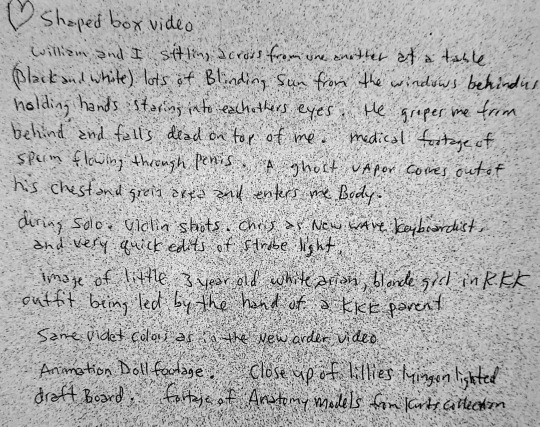 ♡ Shaped box video
William and I sitting across from one another at a table
(Black and white) lots of Blinding Sun from the windows behind us
holding hands staring into eachothers eyes. He gropes me from
behind and falls dead on top of me. medical footage of
sperm flowing through penis. A ghost vapor comes out of
his chest and groin area and enters me Body.
during solo. violin shots. Chris as New wave keyboardist.
and very quick edits of strobe light.
image of little 3 year old white arian, blonde girl in KKK
outfit being led by the hand of a KKK parent
Same colors as in the New order video
Animation Doll footage. Close up of lillies lying on lighted
draft Board. footage of Anatomy models from Kurts Collection